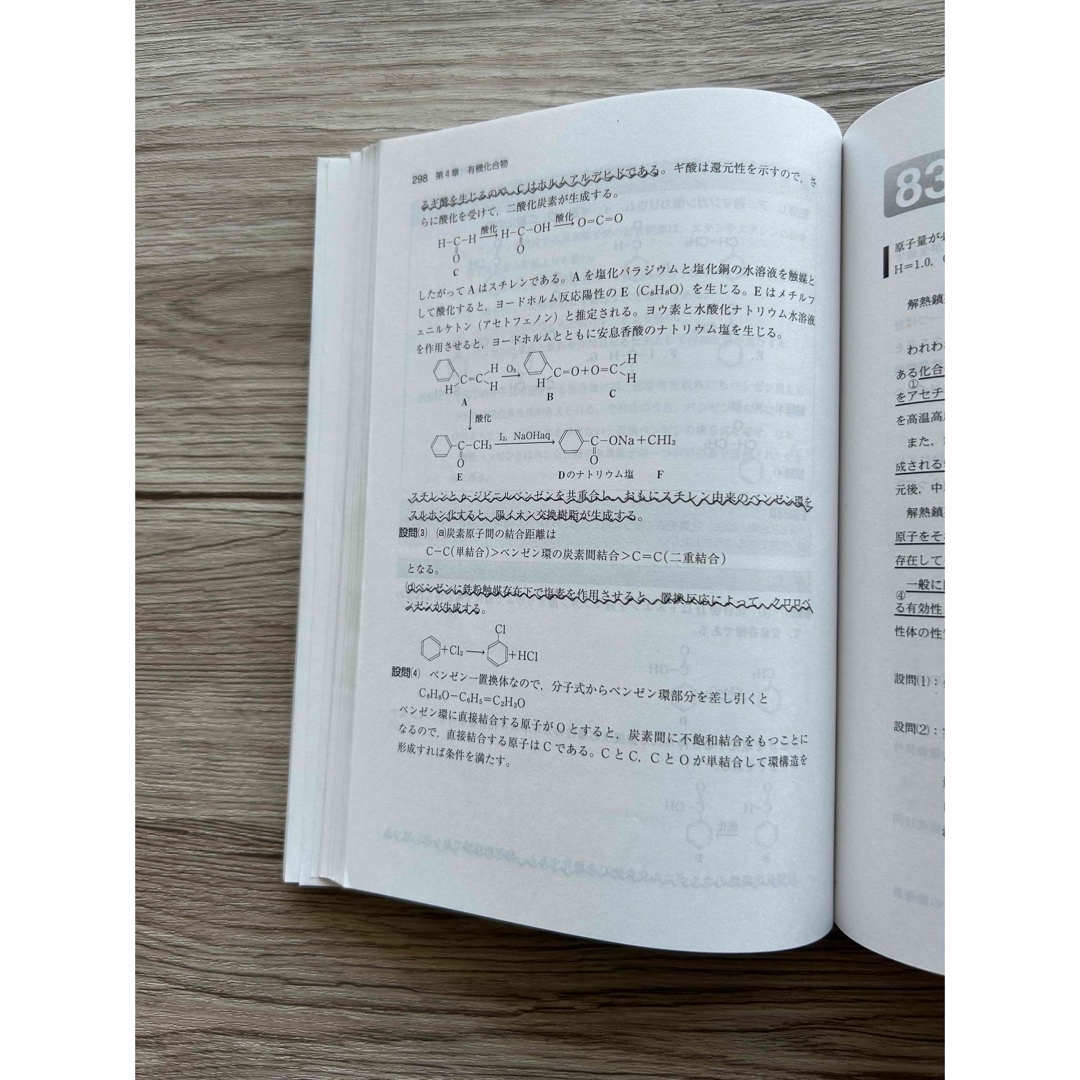 298 第4章 有機化合物
るギ酸を生じるので，Cはホルムアルデヒドである。ギ酸は還元性を示すので，さ
らに酸化を受けて，二酸化炭素が生成する。
H-C-H 酸化→ H-C-OH 酸化→ O=C=O
O O
C
したがってAはスチレンである。Aを塩化パラジウムと塩化銅の水溶液を触媒と
して酸化すると，ヨードホルム反応陽性のE（C₈H₈O）を生じる。Eはメチルフ
ェニルケトン（アセトフェノン）と推定される。ヨウ素と水酸化ナトリウム水溶液
を作用させると，ヨードホルムとともに安息香酸のナトリウム塩を生じる。
H C=C H H O₃→ H C=O+O=C H H
A B C
↓酸化
C-CH₃ I₂, NaOHaq→ C-ONa+CHI₃
O O
E Dのナトリウム塩 F
スチレンとp-ジビニルベンゼンを共重合し，おもにスチレン由来のベンゼン環を
スルホン化すると，陽イオン交換樹脂が生成する。
設問(3) (a)炭素原子間の結合距離は
C-C(単結合)>ベンゼン環の炭素間結合>C=C(二重結合)
となる。
(d)ベンゼンに鉄粉触媒存在下で塩素を作用させると，置換反応によって，クロロベ
ンゼンが生成する。
Cl
+Cl₂→ +HCl
設問(4) ベンゼン一置換体なので，分子式からベンゼン環部分を差し引くと
C₈H₈O-C₆H₅=C₂H₃O
ベンゼン環に直接結合する原子がOとすると，炭素間に不飽和結合をもつことに
なるので，直接結合する原子はCである。CとC，CとOが単結合して環構造を
形成すれば条件を満たす。
83
原子量が必
H=1.0,
解熱鎮
われわ
ある化合
①
をアセチ
を高温高
また，
成される
元後，中
解熱鎮
原子をそ
存在して
一般に
④
る有効性
性体の性
設問(1)：
設問(2)：